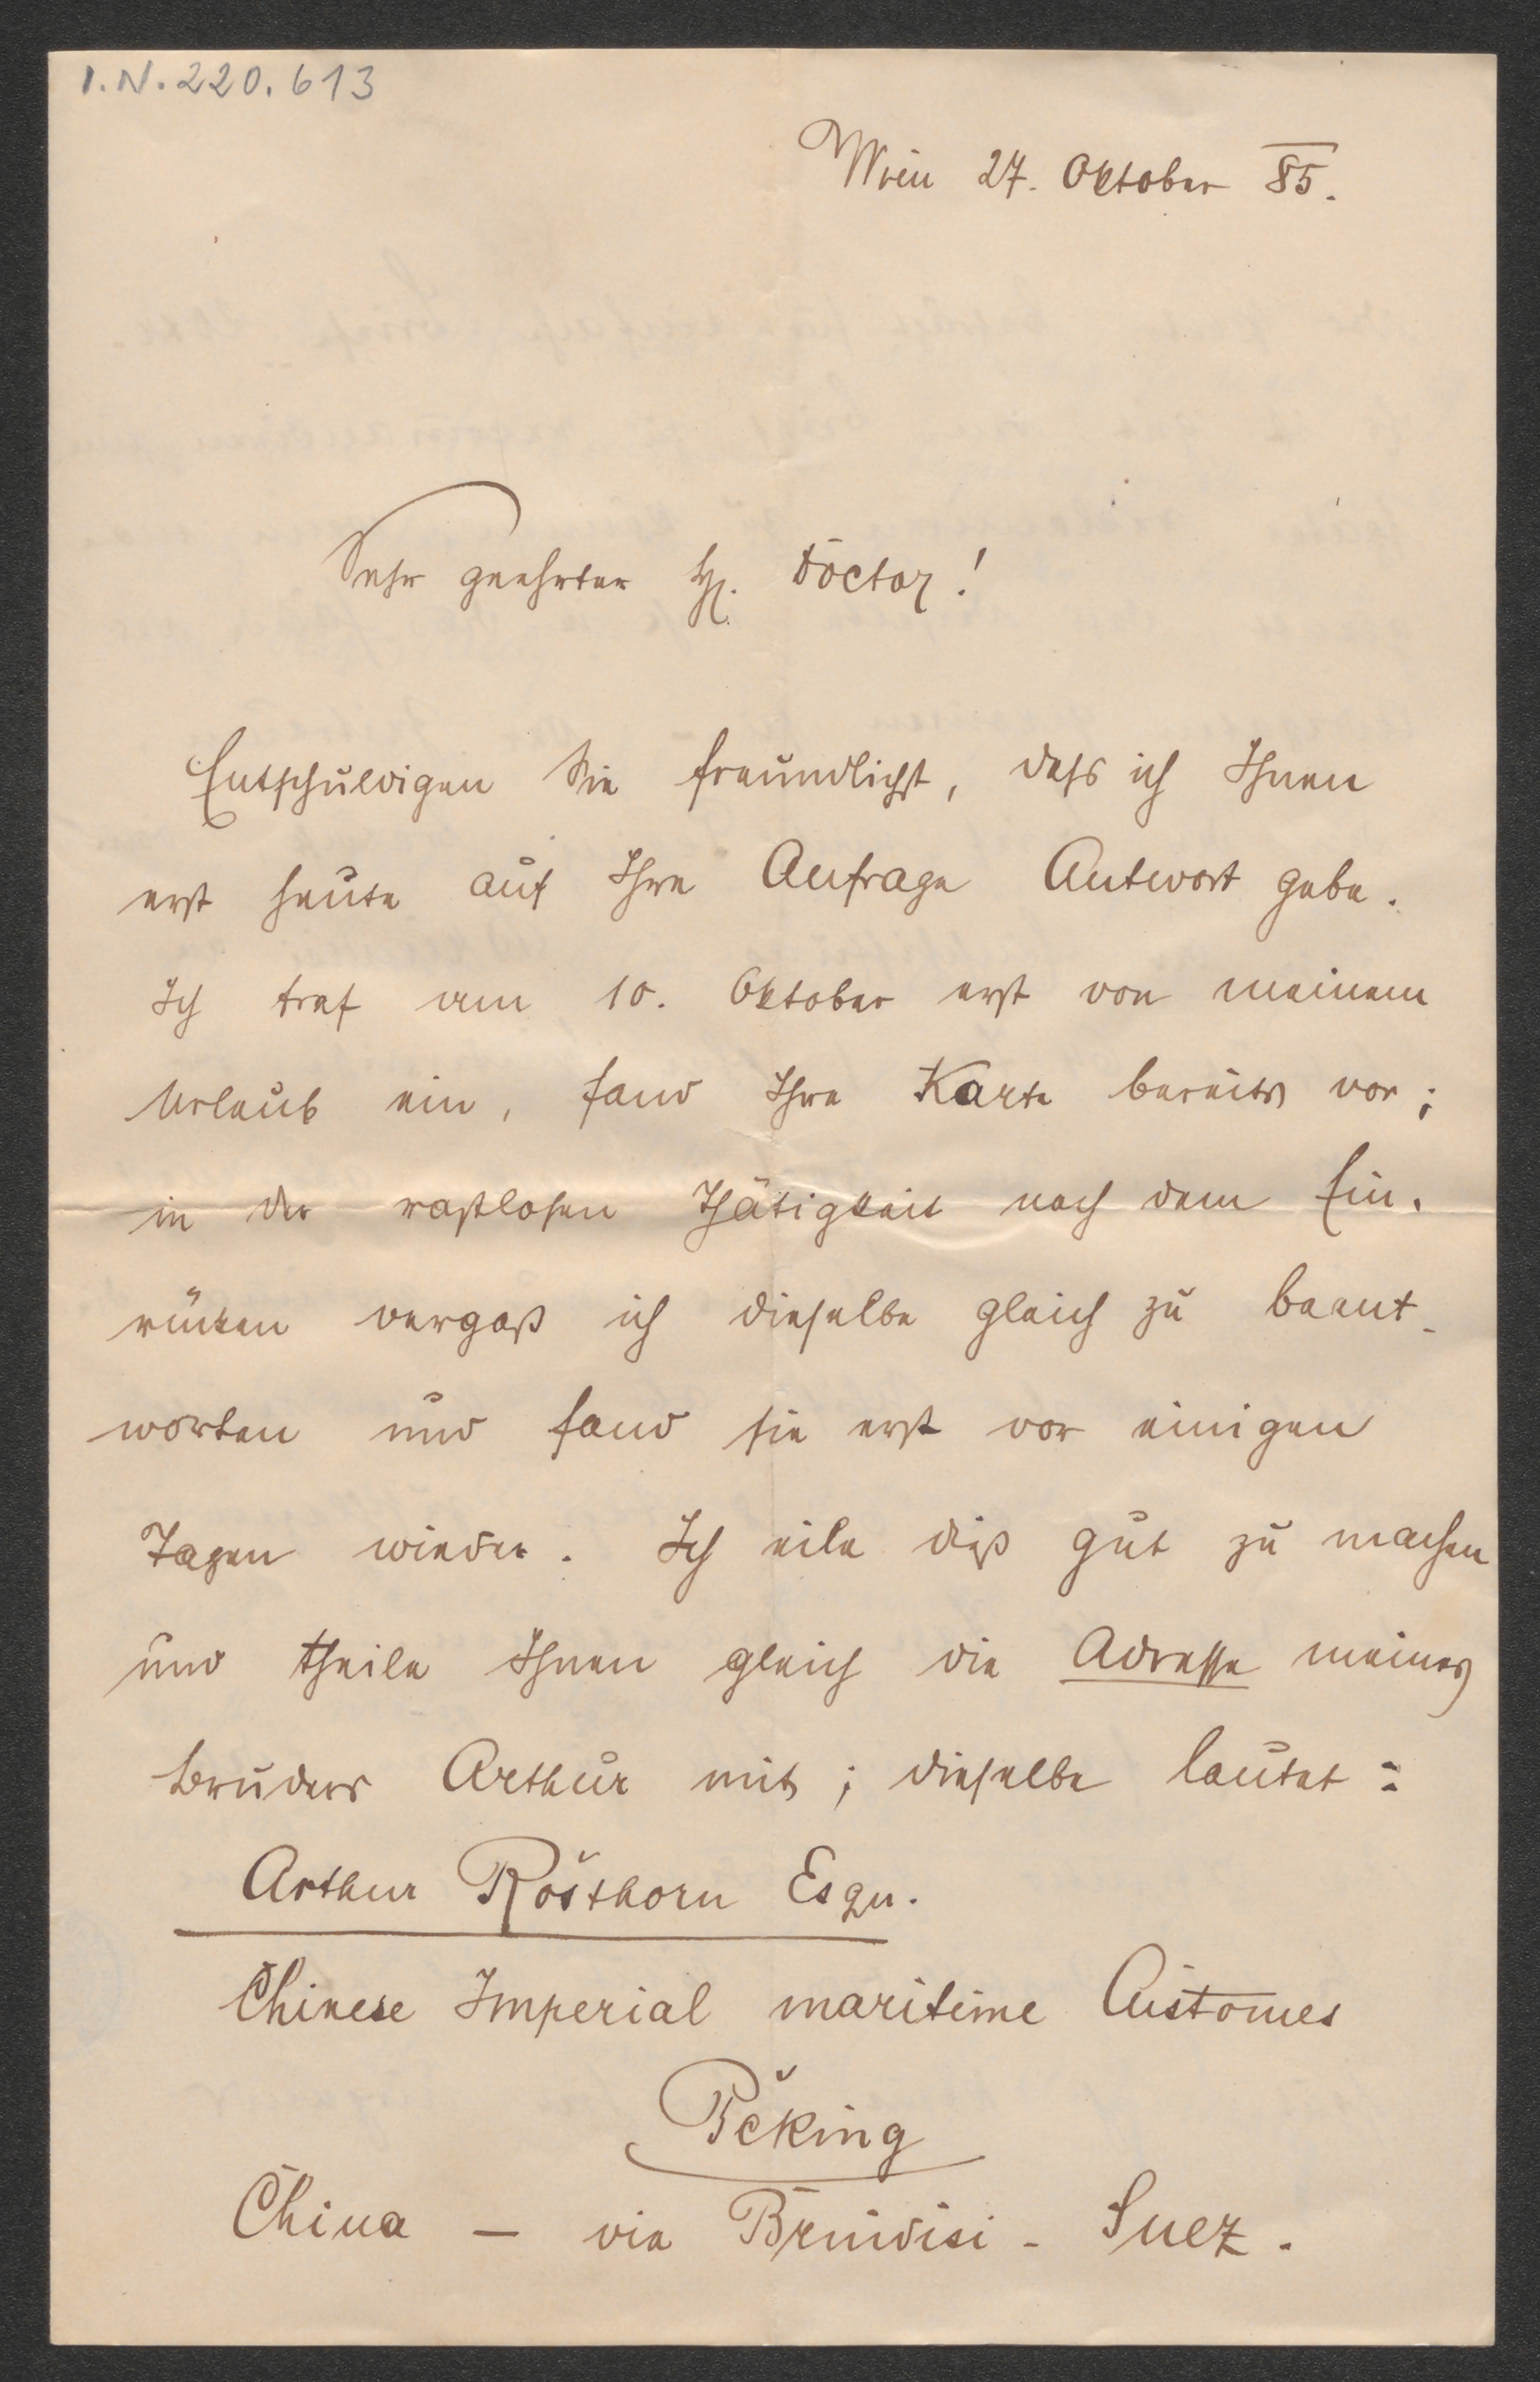 I.N. 220.613
Wien 27. Oktober 85.
Sehr geehrter H. Doctor!
Entschuldigen Sie freundlichst, dass ich Ihnen
erst heute auf Ihre Anfrage Antwort gebe.
Ich traf am 10. Oktober erst von meinem
Urlaub ein, fand Ihre Karte bereits vor;
in der rastlosen Thätigkeit nach dem Ein-
rücken vergaß ich dieselbe gleich zu beant-
worten und fand sie erst vor einigen
Tagen wieder. Ich eile dieß gut zu machen
und theile Ihnen gleich die Adresse meines
Bruders Arthur mit; dieselbe lautet:
Arthur Rosthorn Esqu.
Chinese Imperial maritime Customes
Peking
China — via Brindisi - Suez.